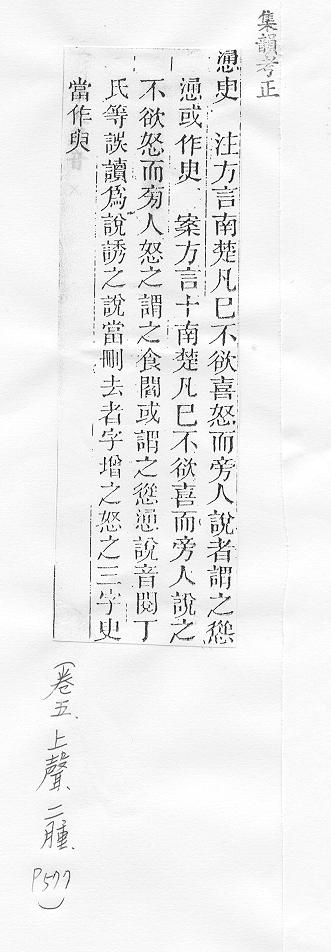 集韻考正
慂㕜 注方言南楚凡已不欲喜怒而旁人說者謂之慫
慂或作㕜 案方言十南楚凡已不欲喜而旁人說之
不欲怒而旁人怒之謂之食閻或謂之慫慂說音閱丁
氏等誤讀爲說誘之說當刪去者字增之怒之三字㕜
當作臾
(卷五、上聲、二腫、P577)